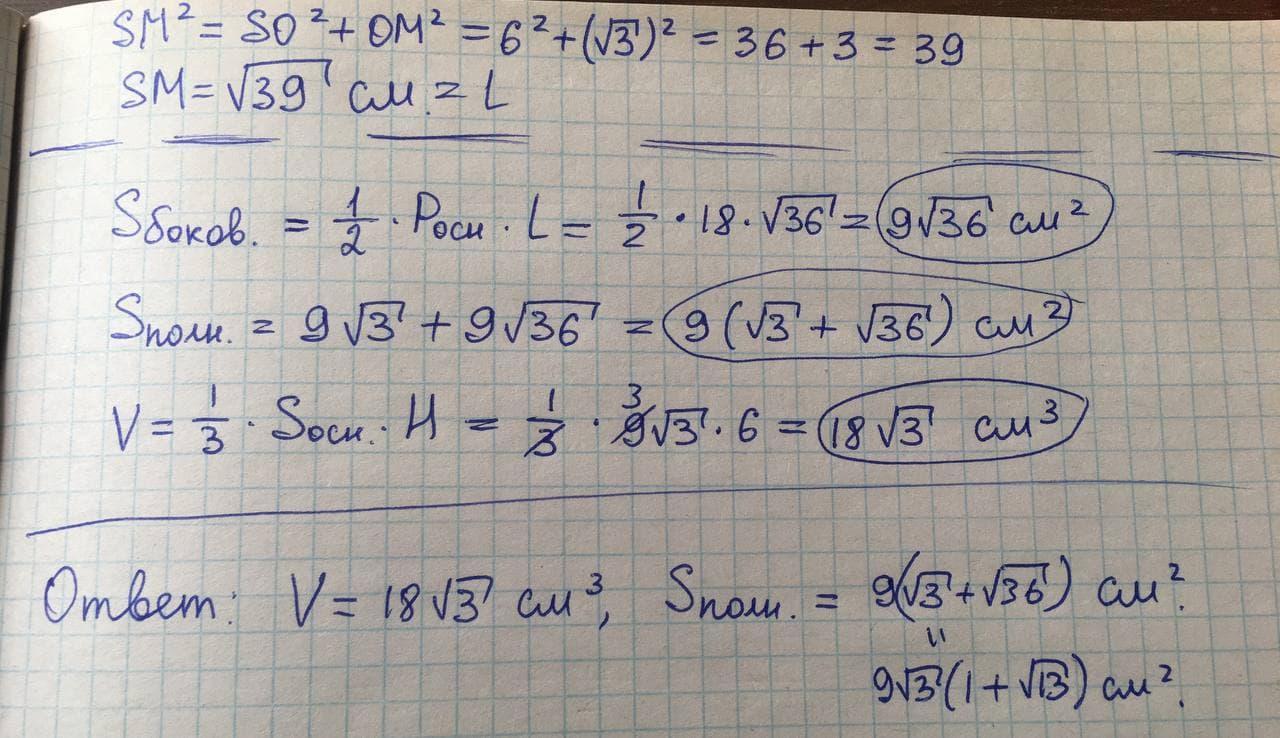 SM² = SO² + OM² = 6² + (√3)² = 36 + 3 = 39
SM = √39 см. = L
Sбоков. = 1/2 · Pосн · L = 1/2 · 18 · √36 = 9√36 см²
Sполн. = 9√3 + 9√36 = 9(√3 + √36) см²
V = 1/3 · Sосн. · H = 1/3 · 9 3 √3 · 6 = 18√3 см³
Ответ: V = 18√3 см³, Sполн. = 9(√3 + √36) см².
=
9√3(1 + √13) см².